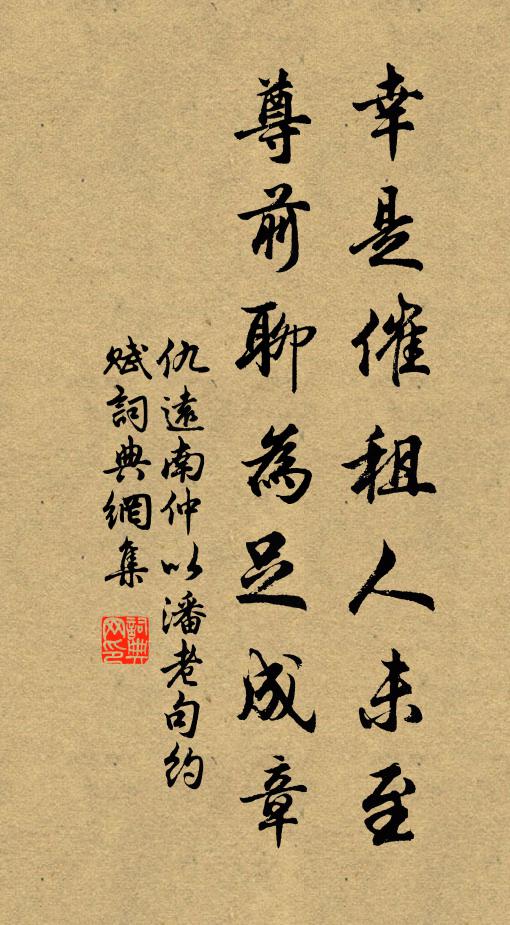 幸是催租人未至
尊前聊為足成章
仇遠南仲以潘老句約
賦詞典網集
詞典网印